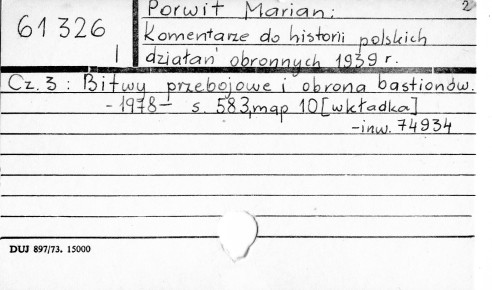 2
Porwit Marian:
61 326
I
Komentarze do historii polskich
działań obronnych 1939 r.
Cz. 3 : Bitwy przebojowe i obrona bastionów.
- 1978 - s. 583, map 10 [wkładka]
- inw. 74934
DUJ 897/73. 15000